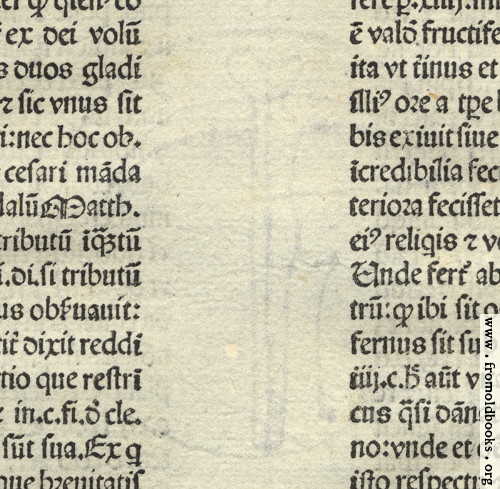 ex dei volū
s duos gladi
⁊ sic vnus sit
i:nec hoc ob.
cesari māda
lalū Matth.
tributū iq̄ȝtū
i.di.si tributū
us obẜuauit:
tit᷑ dixit reddi
tio que restri
in.c.fi.ꝺ̄ cle.
sūt sua.Ex q
que breuitatis
ē valꝺ̄ fructife
ita vt t̄inus et
illiꝰ oꝛe a tꝑe
bis exiuit siue
īcredibilia fec
terioꝛa fecisset
eiꝰ religis ⁊ v
Unde fert᷑ ab
trū:ꝙ ibi sit
fernus sit su
iiij.c.h̄ aūt v
cus q̄si dān
no:vnde et
isto respectu
www.fromoldbooks.org